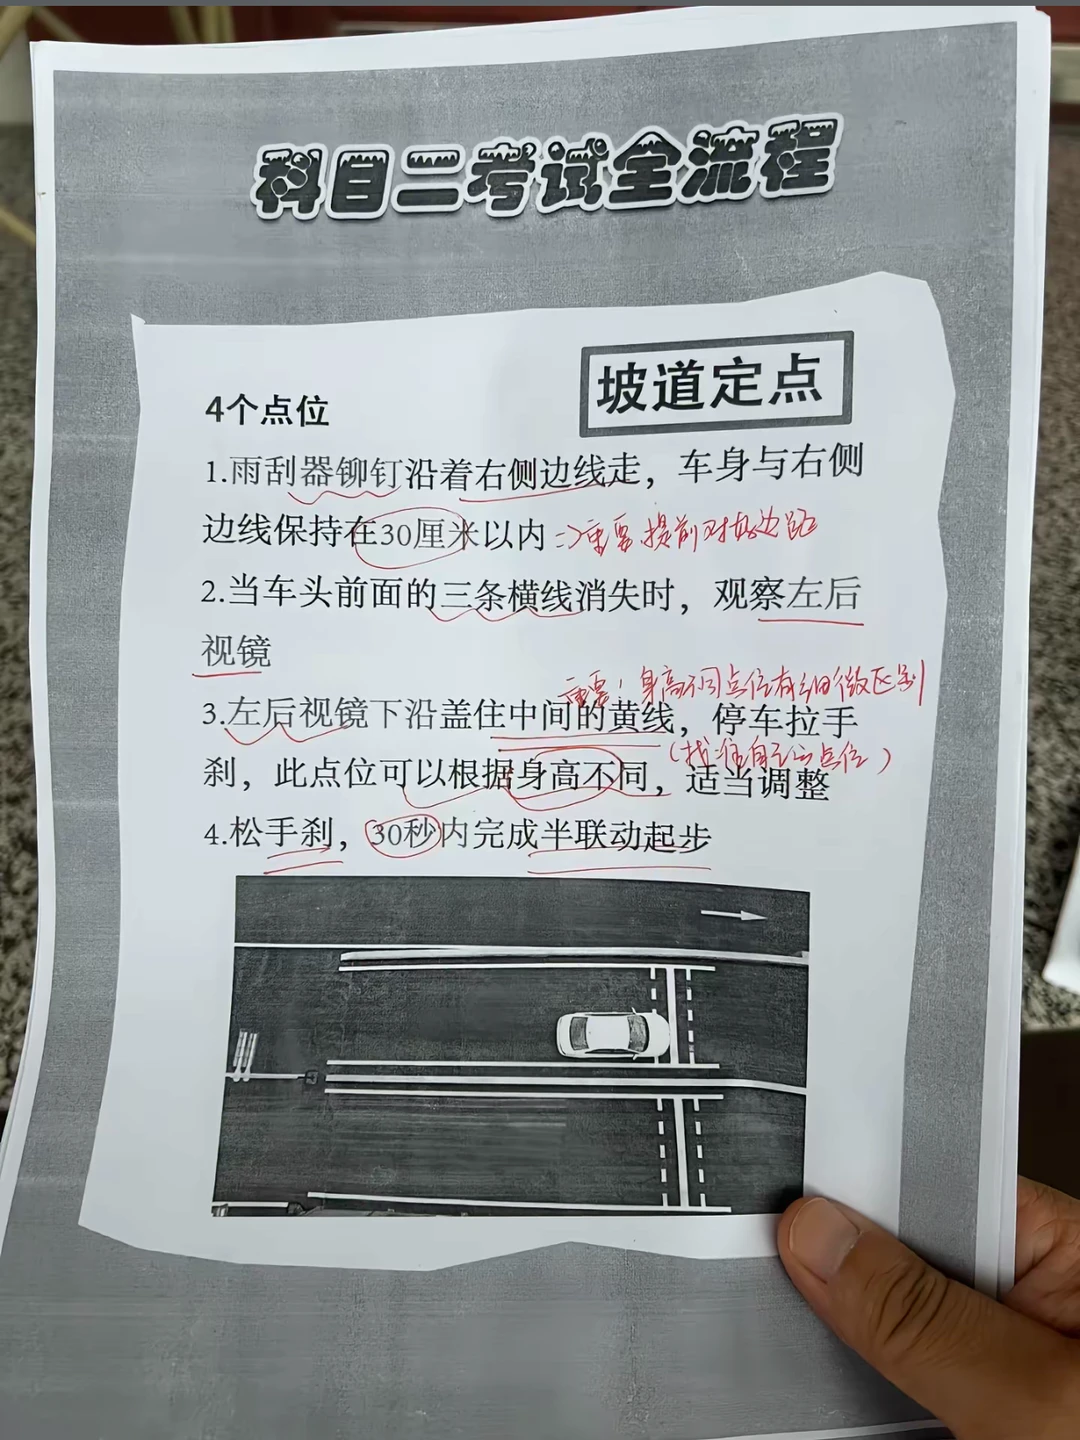 科目二考试全流程
坡道定点
4个点位
1.雨刮器铆钉沿着右侧边线走，车身与右侧
边线保持在30厘米以内 => 重要 提前对好边距
2.当车头前面的三条横线消失时，观察左后
视镜
重要！身高不同点位有细微区别
3.左后视镜下沿盖住中间的黄线，停车拉手
（找准自己点位）
刹，此点位可以根据身高不同，适当调整
4.松手刹，30秒内完成半联动起步